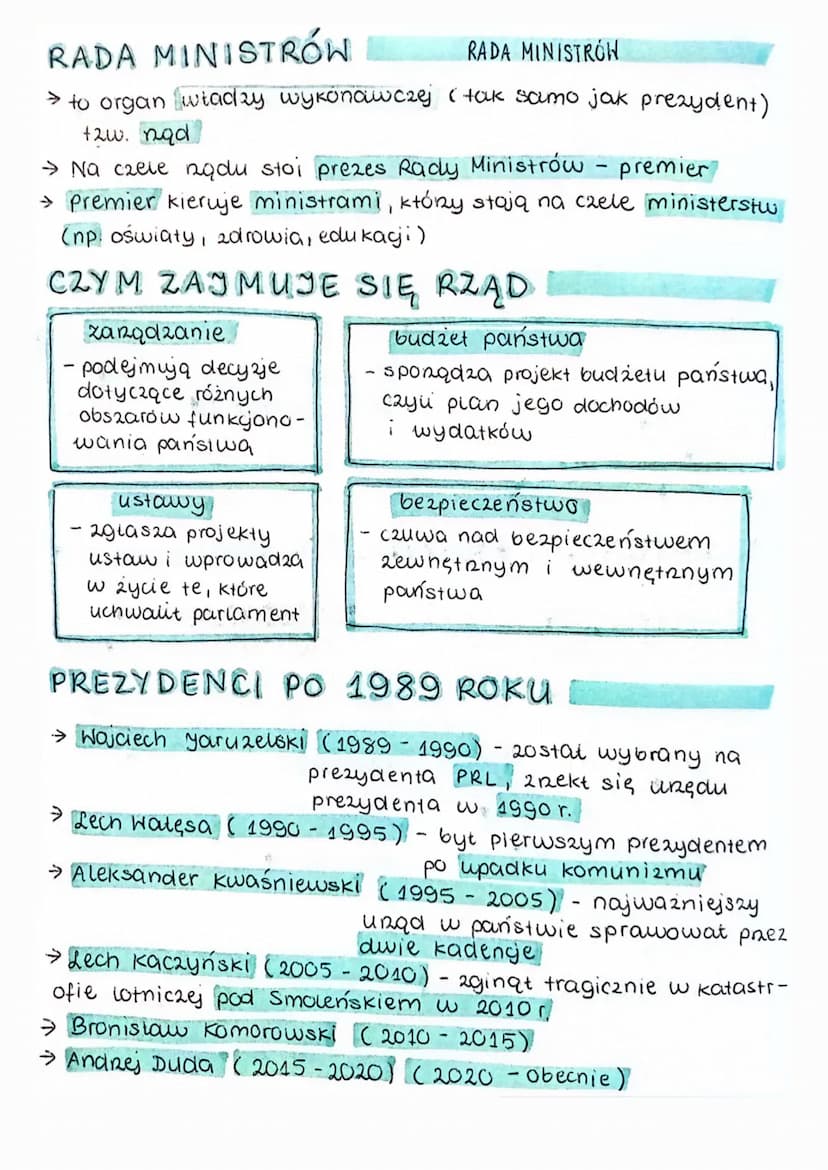 RADA MINISTRÓW RADA MINISTRÓW
→ to organ władzy wykonawczej (tak samo jak prezydent)
tzw. rząd
→ Na czele rządu stoi prezes Rady Ministrów - premier
→ Premier kieruje ministrami, którzy stają na czele ministerstw
(np. oświaty, zdrowia, edukacji)
CZYM ZAJMUJE SIĘ RZĄD
zarządzanie
- podejmują decyzje
dotyczące różnych
obszarów funkcjono-
wania państwa
budżet państwa
- sporządza projekt budżetu państwa,
czyli plan jego dochodów
i wydatków
ustawy
- zgłasza projekty
ustaw i wprowadza
w życie te, które
uchwalił parlament
bezpieczeństwo
- czuwa nad bezpieczeństwem
zewnętrznym i wewnętrznym
państwa
PREZYDENCI PO 1989 ROKU
→ Wojciech Jaruzelski (1989 - 1990) - został wybrany na
prezydenta PRL, zrzekł się urzędu
prezydenta w 1990 r.
→ Lech Wałęsa (1990 - 1995) - był pierwszym prezydentem
po upadku komunizmu
→ Aleksander Kwaśniewski (1995 - 2005) - najważniejszy
urząd w państwie sprawował przez
dwie kadencje
→ Lech Kaczyński (2005 - 2010) - zginął tragicznie w katastr-
ofie lotniczej pod Smoleńskiem w 2010 r.
→ Bronisław Komorowski (2010 - 2015)
→ Andrzej Duda (2015 - 2020) (2020 - Obecnie)